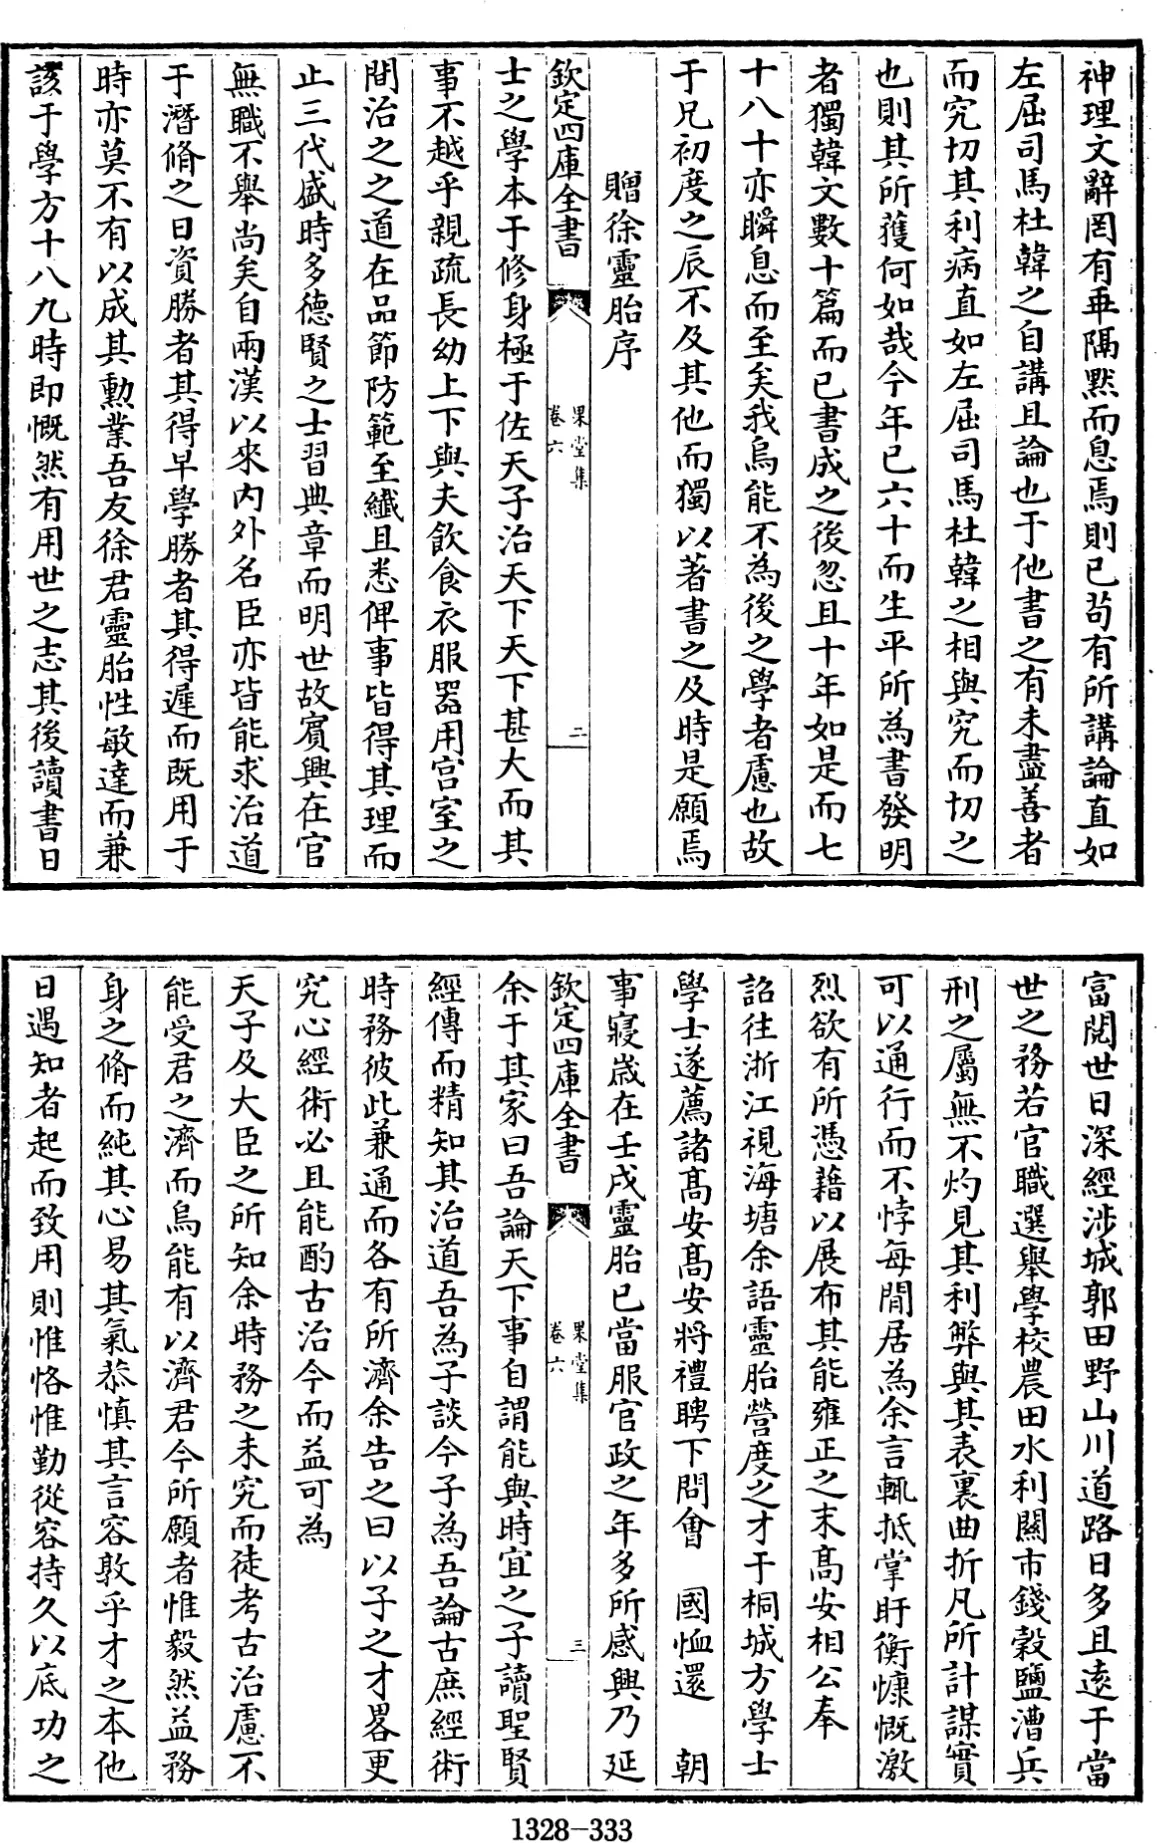 神理文辭罔有乖隔黙而息焉則已茍有所講論直如
左屈司馬杜韓之自講且論也于他書之有未盡善者
而究切其利病直如左屈司馬杜韓之相與究而切之
也則其所獲何如哉今年已六十而生平所為書發明
者獨韓文數十篇而已書成之後忽且十年如是而七
十八十亦瞬息而至矣我烏能不為後之學者慮也故
于兄初度之辰不及其他而獨以著書之及時是願焉
贈徐靈胎序
欽定四庫全書
果堂集
卷六
二
士之學本于修身極于佐天子治天下天下甚大而其
事不越乎親疏長幼上下與夫飲食衣服器用宫室之
間治之之道在品節防範至纖且悉俾事皆得其理而
止三代盛時多德賢之士習典章而明世故賔興在官
無職不舉尚矣自兩漢以來内外名臣亦皆能求治道
于潛脩之日資勝者其得早學勝者其得遲而既用于
時亦莫不有以成其勲業吾友徐君靈胎性敏達而兼
該于學方十八九時即慨然有用世之志其後讀書日
富閲世日深經涉城郭田野山川道路日多且逺于當
世之務若官職選舉學校農田水利闗市錢穀鹽漕兵
刑之屬無不灼見其利弊與其表裏曲折凡所計謀實
可以通行而不悖每間居為余言輒抵掌盱衡慷慨激
烈欲有所憑藉以展布其能雍正之末髙安相公奉
詔往浙江視海塘余語靈胎營度之才于桐城方學士
學士遂薦諸髙安髙安將禮聘下問會　國恤還　朝
事寢嵗在壬戌靈胎已當服官政之年多所感興乃延
欽定四庫全書
果堂集
卷六
三
余于其家曰吾論天下事自謂能與時宜之子讀聖賢
經傳而精知其治道吾為子談今子為吾論古庶經術
時務彼此兼通而各有所濟余告之曰以子之才畧更
究心經術必且能酌古治今而益可為
天子及大臣之所知余時務之未究而徒考古治慮不
能受君之濟而烏能有以濟君今所願者惟毅然益務
身之脩而純其心易其氣恭慎其言容敦乎才之本他
日遇知者起而致用則惟恪惟勤從容持久以底功之
1328-333